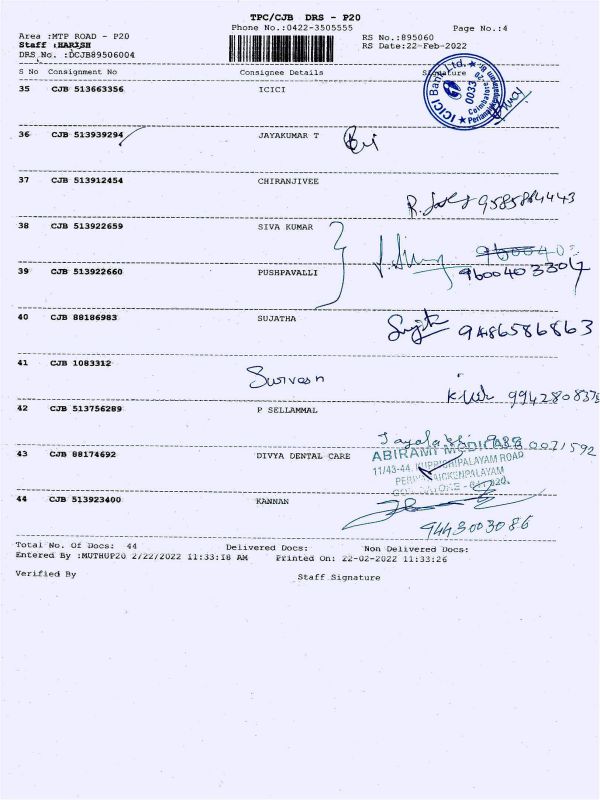 TPC/CJB DRS - P20
Phone No.:0422-3505555 Page No.:4
Area :MTP ROAD - P20 RS No.:895060
Staff :HARISH RS Date:22-Feb-2022
DRS No. :DCJB89506004
S No Consignment No Consignee Details Signature
35 CJB 513663356 ICICI
ICICI Bank Ltd. 0033
36 CJB 513939294 JAYAKUMAR T
37 CJB 513912454 CHIRANJIVEE
9585884443
38 CJB 513922659 SIVA KUMAR
39 CJB 513922660 PUSHPAVALLI
9600403304
40 CJB 88186983 SUJATHA
9486586863
41 CJB 1083312
42 CJB 513756289 P SELLAMMAL
43 CJB 88174692 DIVYA DENTAL CARE
ABIRAMI MEDICALS
11/43-44, KUPPICHIPALAYAM ROAD
44 CJB 513923400 KANNAN
9443003086
Total No. Of Docs: 44 Delivered Docs: Non Delivered Docs:
Entered By :MUTHUP20 2/22/2022 11:33:18 AM Printed On: 22-02-2022 11:33:26
Verified By Staff Signature